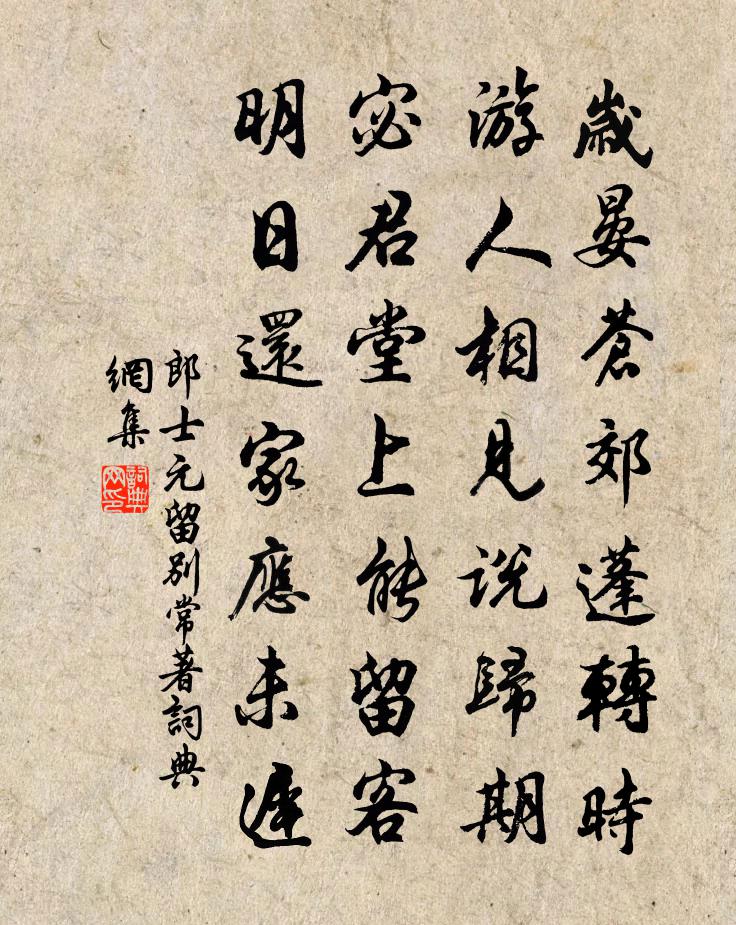 歲晏蒼郊蓬轉時
游人相見說歸期
宓君堂上能留客
明日還家應未遲
郎士元留別常著詞典
網集
詞典
网印